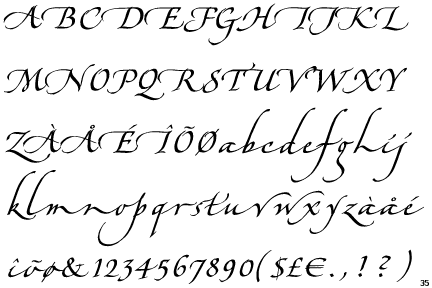 ABCDEFGHIJKL
MNOPQRSTUVWXY
ZÀÅÉÎÕØabcdefghij
klmnopqrstuvwxyzàåé
îõø&1234567890($£€.,!?)
35